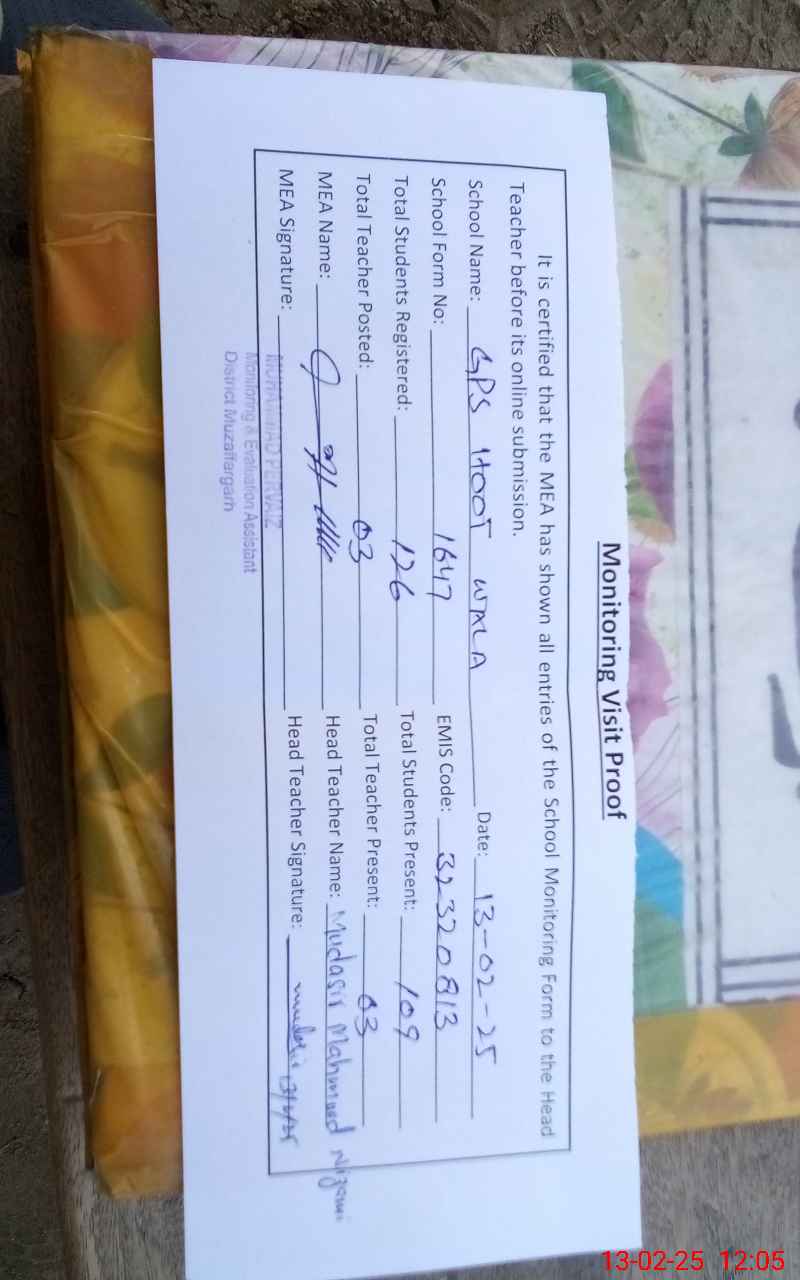 Monitoring Visit Proof
It is certified that the MEA has shown all entries of the School Monitoring Form to the Head
Teacher before its online submission.
School Name: GPS HOOT WALA Date: 13-02-25
School Form No: 1647 EMIS Code: 32320813
Total Students Registered: 126 Total Students Present: 109
Total Teacher Posted: 03 Total Teacher Present: 03
MEA Name: Head Teacher Name: Mudasir Mahmood Nizami
MEA Signature: Head Teacher Signature:
MUHAMMAD PERVAIZ
Monitoring & Evaluation Assistant
District Muzaffargarh
13-02-25 12:05